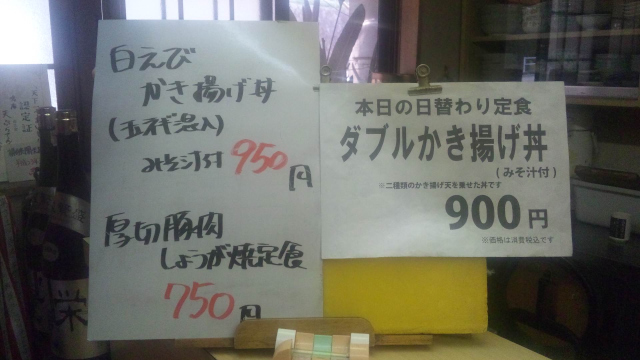 白えび
かき揚げ丼
(玉ネギ入)
みそ汁付 950円
厚切豚肉
しょうが焼定食
750円
本日の日替わり定食
ダブルかき揚げ丼
(みそ汁付)
※二種類のかき揚げ天を乗せた丼です
900円
※価格は消費税込です
認定証
栄